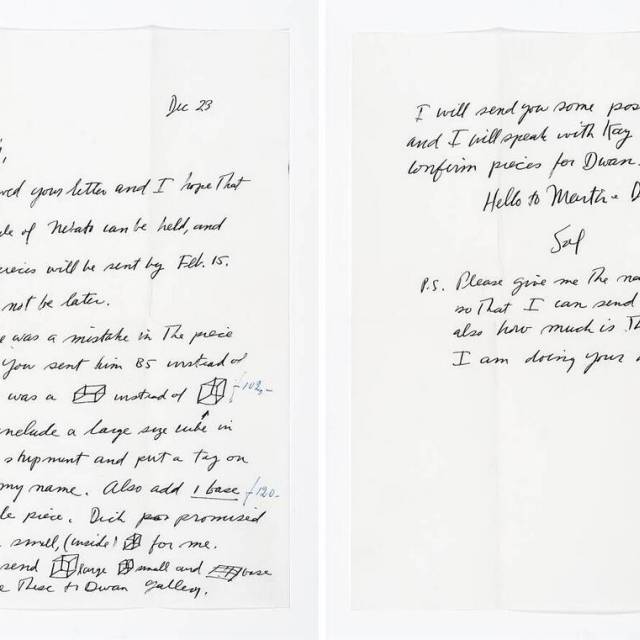 Dec 23
your letter and I hope that
of can be held, and
will be sent by Feb. 15.
not be later.
was a mistake in The piece
you sent him B5 instead of
was a instead of
include a large size cube in
shipment and put a tag on
my name. Also add 1 base
piece. Dick promised
small, (inside) for me.
send large small and base
These to Dwan gallery.
I will send you some
and I will speak with Kay
confirm pieces for Dwan.
Hello to
Sol
P.S. Please give me the
so That I can send
also how much is
I am doing your